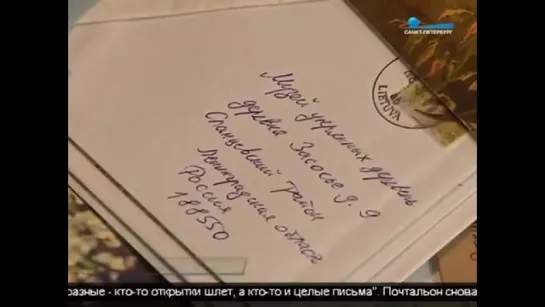 САНКТ-ПЕТЕРБУРГ
LIETUVA
Музей умерших деревень
деревня Засосье д. 9
Сланцевский район
Ленинградская область
Россия
188550
разные - кто-то открытки шлет, а кто-то и целые письма". Почтальон снова